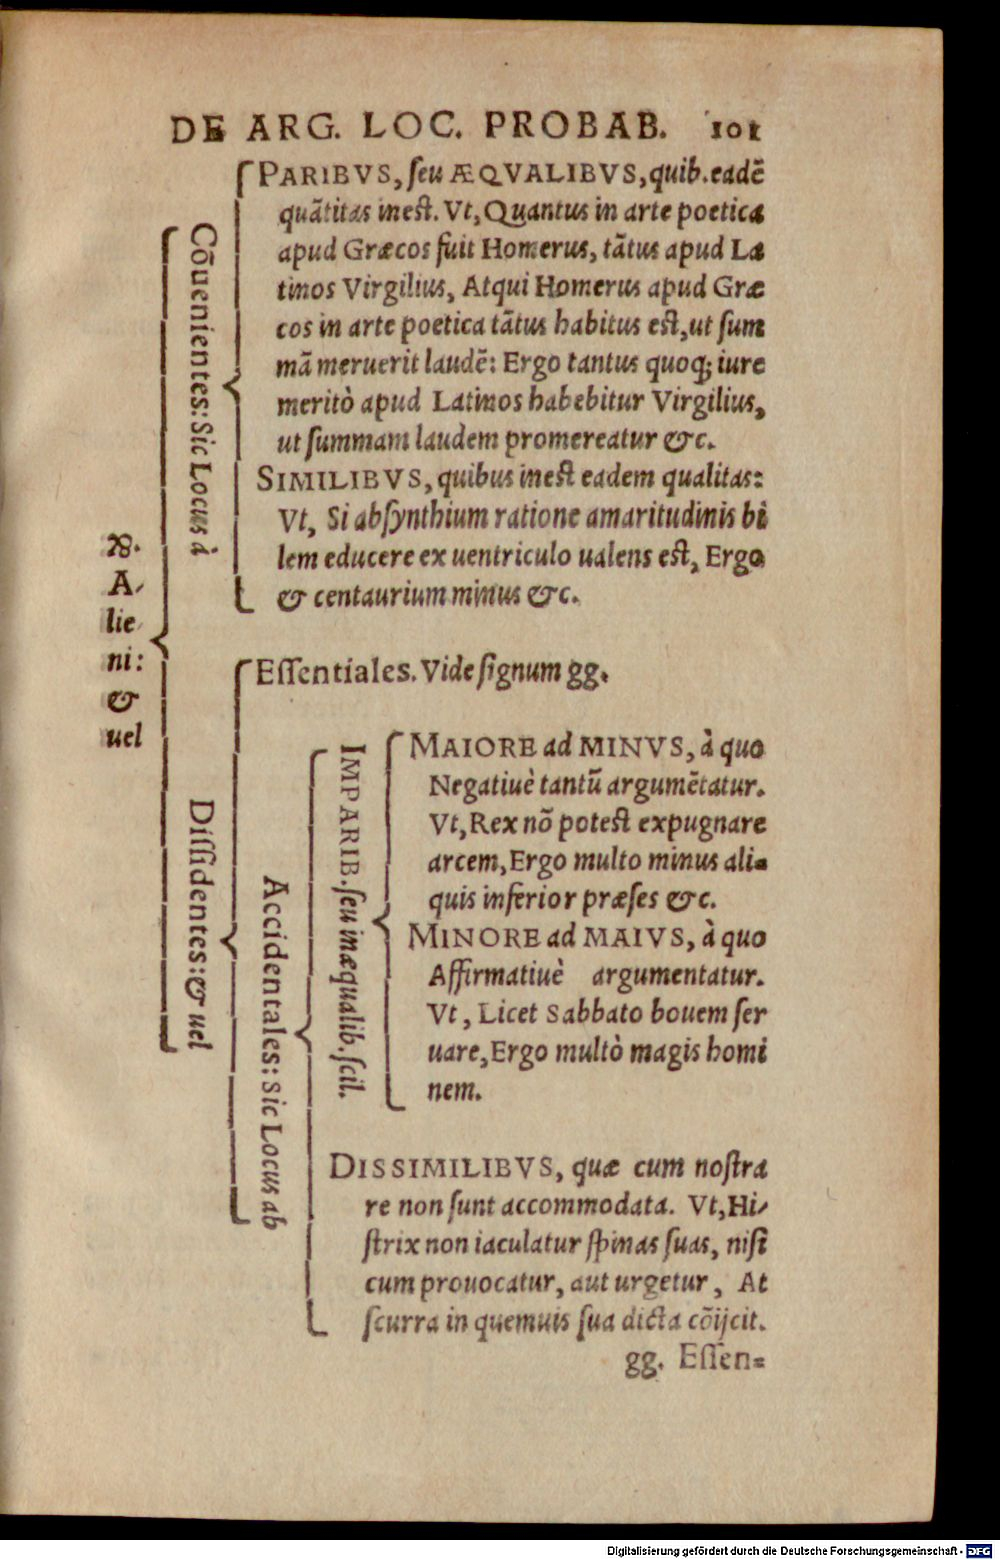 DE ARG. LOC. PROBAB. 101
Alie
ni:
&
uel
Cōuenientes: Sic Locus à
PARIBVS, ſeu ÆQVALIBVS, quib. eadē
quātitas ineſt. Vt, Quantus in arte poetica
apud Græcos fuit Homerus, tātus apud La
tinos Virgilius, Atqui Homerus apud Græ
cos in arte poetica tātus habitus eſt, ut ſum
mā meruerit laudē: Ergo tantus quoq; iure
meritò apud Latinos habebitur Virgilius,
ut ſummam laudem promereatur &c.
SIMILIBVS, quibus ineſt eadem qualitas:
Vt, Si abſynthium ratione amaritudinis bi
lem educere ex uentriculo ualens eſt, Ergo
& centaurium minus &c.
Diſſidentes: & uel
Eſſentiales. Vide ſignum gg.
Accidentales: Sic Locus ab
IMPARIB. ſeu inæqualib. ſcil.
MAIORE ad MINVS, à quo
Negatiuè tantū argumētatur.
Vt, Rex nō poteſt expugnare
arcem, Ergo multo minus ali-
quis inferior præſes &c.
MINORE ad MAIVS, à quo
Affirmatiuè argumentatur.
Vt, Licet Sabbato bouem ſer
uare, Ergo multò magis homi
nem.
DISSIMILIBVS, quæ cum noſtra
re non ſunt accommodata. Vt, Hi-
ſtrix non iaculatur ſpinas ſuas, niſi
cum prouocatur, aut urgetur, At
ſcurra in quemuis ſua dicta cōijcit.
gg. Eſſen-
Digitalisierung gefördert durch die Deutsche Forschungsgemeinschaft - DFG